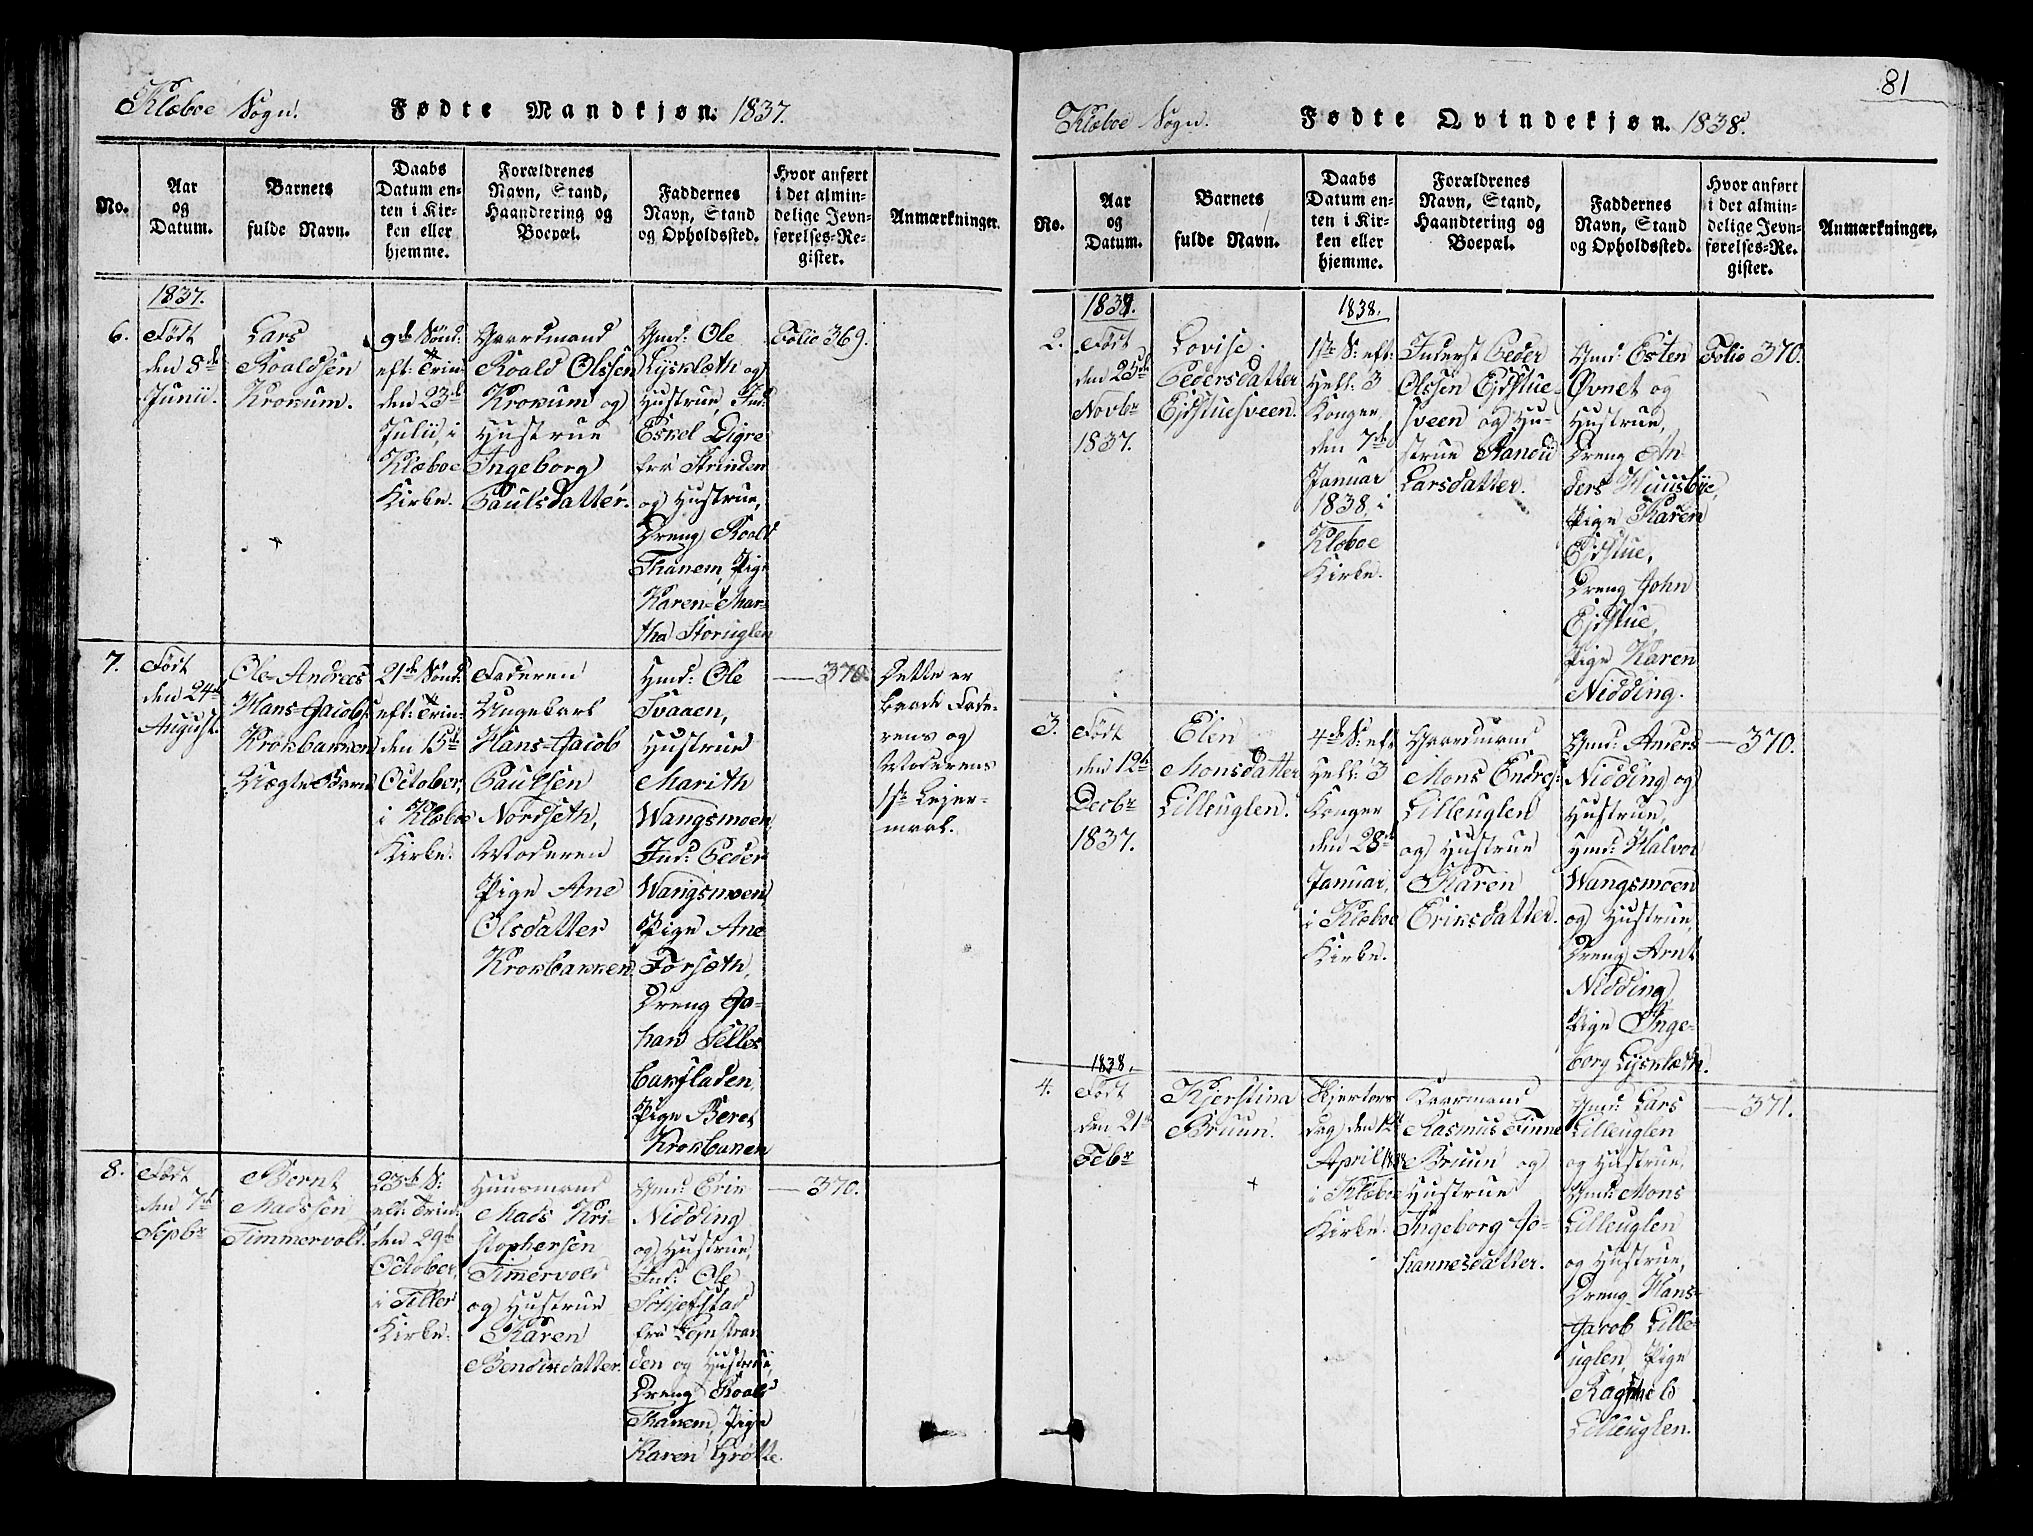 Klæboe Sogn.
Fødte Mandkjøn: 1837.
No.
Aar
og
Datum.
Barnets
fulde Navn.
Daabs
Datum en-
ten i Kir-
ken eller
hjemme.
Forældrenes
Navn, Stand,
Haandtering og
Boepæl.
Faddernes
Navn, Stand
og Opholdssted.
Hvor anført
i det almin-
delige Jevn-
førelses-Re-
gister.
Anmærkninger.
1837.
6.
Født
den 8de
Junii.
Lars
Roaldsen
Krokum.
9de Sönd:
eft: Trin:
den 23de
Julii, i
Klæboe
Kirke.
Gaardmand
Roald Olssen
Krokum og
Hustrue
Ingeborg
Paulsdatter.
Gmd: Ole
Lysklæth og
Hustrue, Ind:
Eskel Digre
fra Strinden
og Hustrue,
Dreng Roald
Thanem, Pige
Karen-Mar-
tha Storuglen
Folio 369.
7.
Født
den 24de
August.
Ole-Andreas
Hans-Jacobs:
Krokbakken
Uægte Barn
21de Sönd:
eft: Trin:
den 15de
October,
i Klæboe
Kirke.
Faderen
Ungekarl
Hans-Jacob
Paulsen
Nordseth,
Moderen
Pige Ane
Olsdatter
Krokbakken
Hmd: Ole
Svaaen,
Hustrue
Marith
Wangsmoen,
Ind: Peder
Wangsmoen,
Pige Ane
Forsæth,
Dreng Jo-
han Selles
bakfladen,
Pige Beret
Krokbanen
— 370.
Dette er
baade Fade-
rens og
Moderens
1ste Lejer-
maal.
8.
Født
den 7de
Sepbr
Bernt
Madssen
Timmervold.
23de S:
eft: Trin:
den 29de
October,
i Tiller
Kirke.
Huusmand
Mads Kri-
stophersen
Timervold
og Hustrue
Karen
Bendixdatter.
Gmd: Erik
Nidding
og Hustrue,
Ind: Ole
Schjefstad
fra Lejnstran-
den og Hustrue,
Dreng Roald
Thanem, Pige
Karen Grötte.
— 370.
81
Klæboe Sogn.
Fødte Qvindekjøn. 1838.
No.
Aar
og
Datum.
Barnets
fulde Navn.
Daabs
Datum en-
ten i Kir-
ken eller
hjemme.
Forældrenes
Navn, Stand,
Haandtering og
Boepæl.
Faddernes
Navn, Stand
og Opholdssted.
Hvor anført
i det almin-
delige Jevn-
førelses-Re-
gister.
Anmærkninger.
1837.
2.
Født
den 25de
Novbr
1837.
Lovise
Pedersdatter
Ejdstuesveen.
1838.
1ste S: eft:
Hell: 3
Konger,
den 7de
Januar
1838, i
Klæboe
Kirke.
Inderst Peder
Olssen Ejdstue-
sveen og Hu-
strue Randi
Larsdatter.
Gmd: Esten
Øvnet og
Hustrue,
Dreng An-
ders Huusbye,
Pige Karen
Ejdstue,
Dreng John
Ejdstue,
Pige Karen
Nidding.
Folio 370.
3.
Født
den 12te
Decbr
1837.
Elen
Monsdatter
Lilleuglen.
4de S: eft
Hell: 3
Konger
den 28de
Januar,
i Klæboe
Kirke.
Gaardmand
Mons Endres:
Lilleuglen
og Hustrue
Karen
Eriksdatter.
Gmd: Anders
Nidding og
Hustrue,
Hmd: Halvor
Wangsmoen
og Hustrue,
Dreng Arnt
Nidding,
Pige Inge-
borg Lysklæth.
— 370.
1838.
4.
Født
den 21de
Febr
Kjerstina
Bruun.
Skjertors
dag den 12te
April 1838
i Klæboe
Kirke.
Kaarmand
Rasmus Finne
Bruun og
Hustrue
Ingeborg Jo-
hannesdatter.
Gmd: Lars
Lilleuglen
og Hustrue,
Gmd: Mons
Lilleuglen
og Hustrue,
Dreng Hans-
Jacob Lille-
uglen, Pige
Ragnhild
Lilleuglen.
— 371.